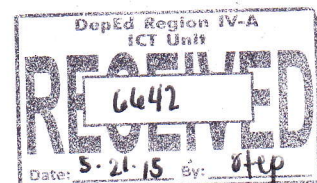 DepEd Region IV-A
ICT Unit
RECEIVED
6642
Date: 5-21-15 By: step